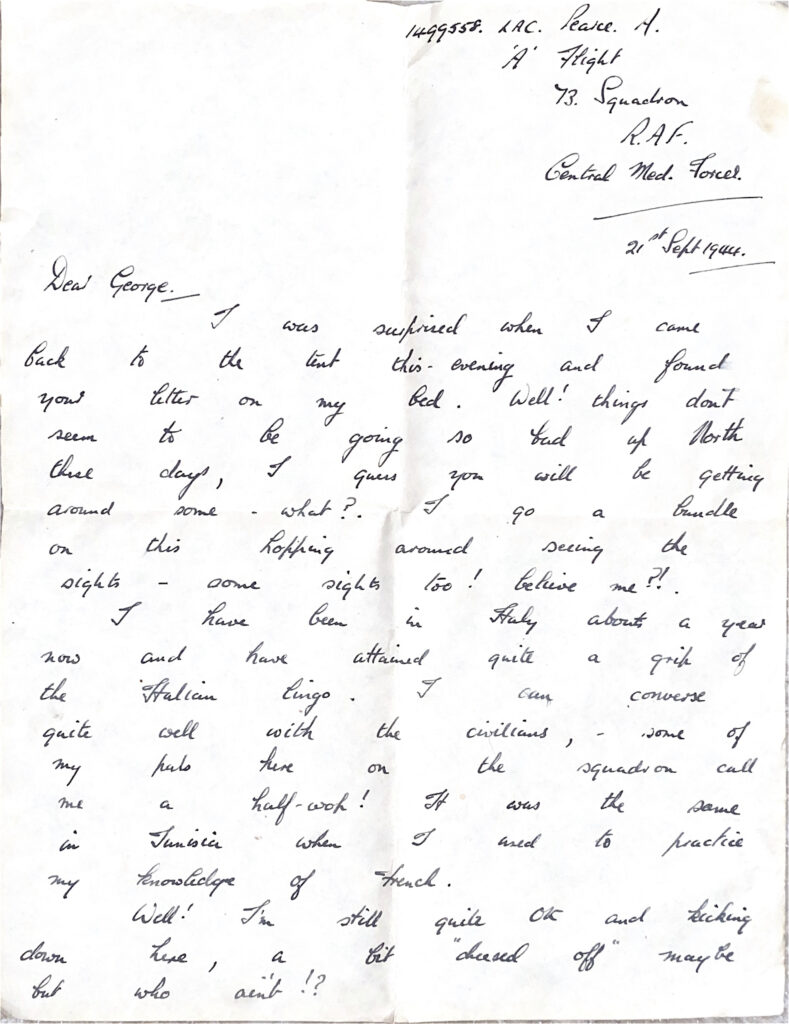 1499558. LAC. Pearce. A.
'A' Flight
73. Squadron
R.A.F.
Central Med. Forces.
21st Sept 1944.
Dear George.
I was surprised when I came
back to the tent this-evening and found
your letter on my bed. Well! things don't
seem to be going so bad up North
these days, I guess you will be getting
around some - what?. I go a bundle
on this hopping around seeing the
sights - some sights too! believe me?!.
I have been in Italy about a year
now and have attained quite a grip of
the Italian lingo. I can converse
quite well with the civilians, - some of
my pals here on the squadron call
me a half-wop! It was the same
in Tunisia when I used to practice
my knowledge of French.
Well! I'm still quite OK and kicking
down here, a bit "cheesed off" maybe
but who ain't!?